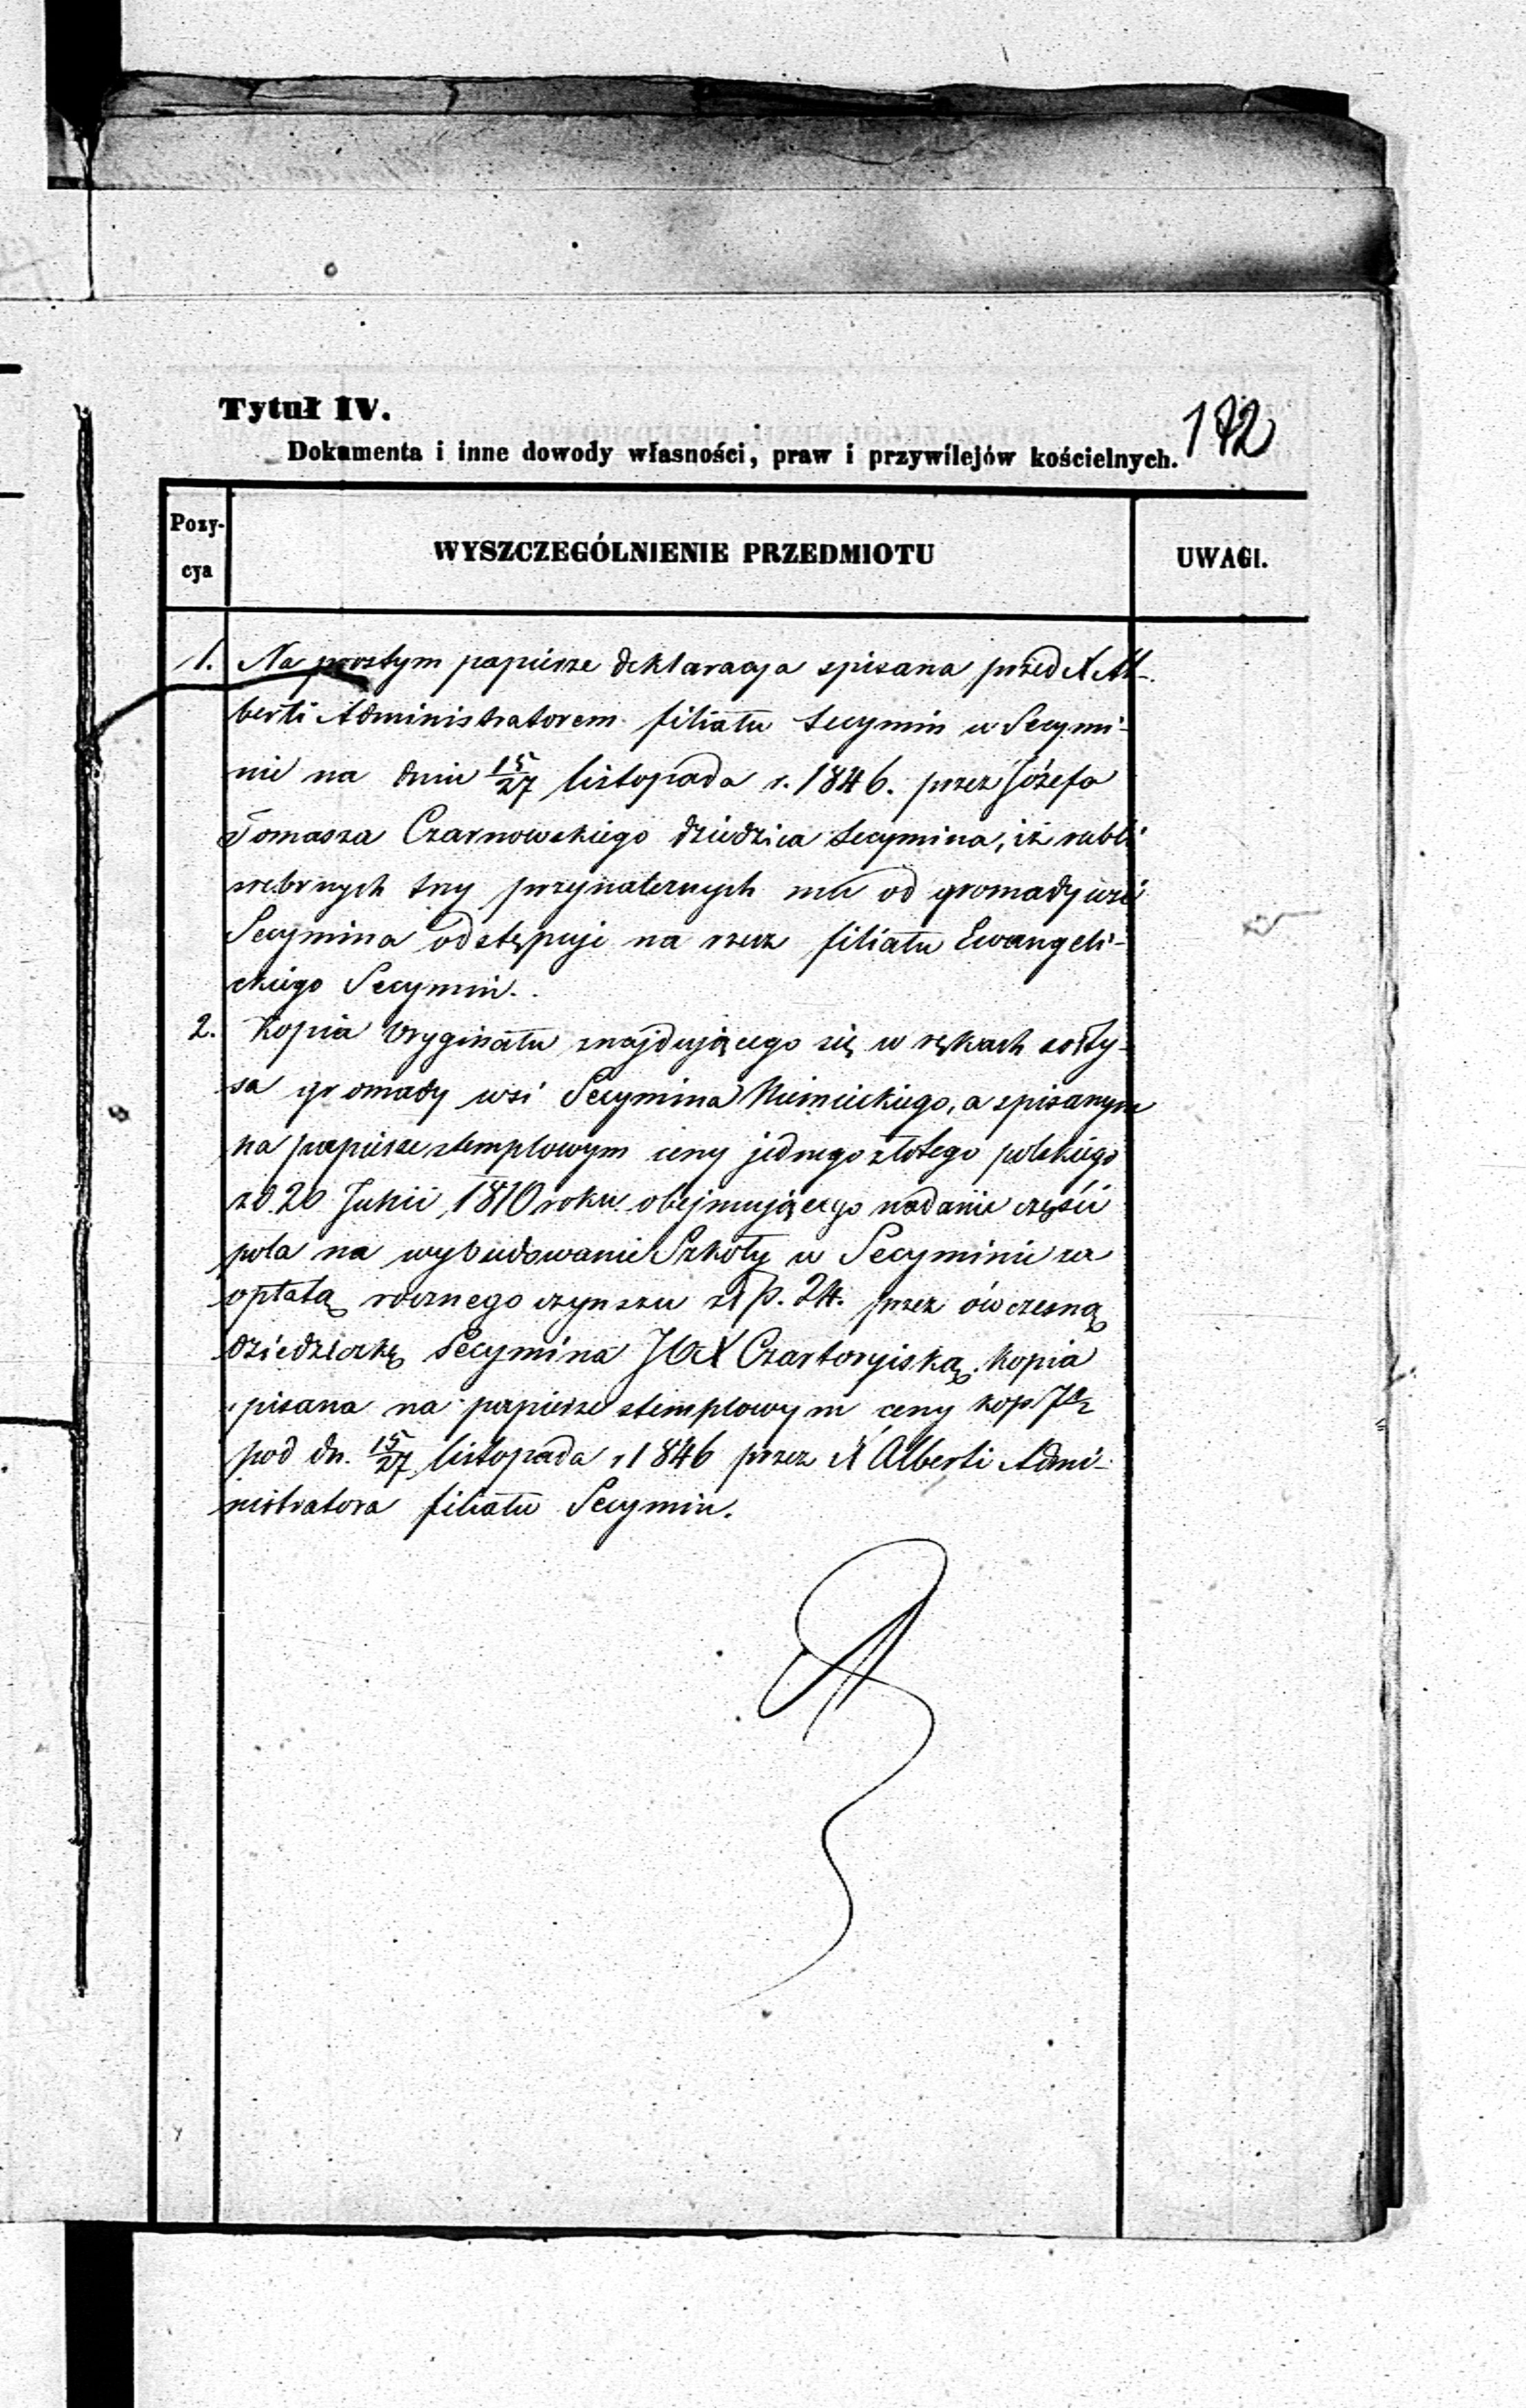 Tytuł IV.
Dokumenta i inne dowody własności, praw i przywilejów kościelnych.
Pozy-
cya
WYSZCZEGÓLNIENIE PRZEDMIOTU
UWAGI.
1. Na prostym papierze deklaracja spisana przed X Al-
berti Administratorem filiału Secymin w Secymi-
nie na dniu 15/27 listopada r. 1846. przez Józefa
Tomasza Czarnowskiego dziedzica Secymina, iż rubli
srebrnych trzy przynależnych mu od gromady wsi
Secymina odstępuje na rzecz filiału Ewangeli-
ckiego Secymin.
2. Kopia Oryginału znajdującego się w rękach sołty-
sa gromady wsi Secymina Niemieckiego, a spisanym
na papierze stemplowym ceny jednego złotego polskiego
z d. 20 Junii 1810 roku obejmującego nadanie części
pola na wybudowanie Szkoły w Secyminie za
opłatą rocznego czynszu złp. 24. przez ówczesną
dziedziczkę Secymina Czartoryiską. Kopia
pisana na papierze stemplowym ceny kop. 7½
pod dn. 15/27 listopada r 1846 przez X Alberti Admi-
nistratora filiału Secymin.